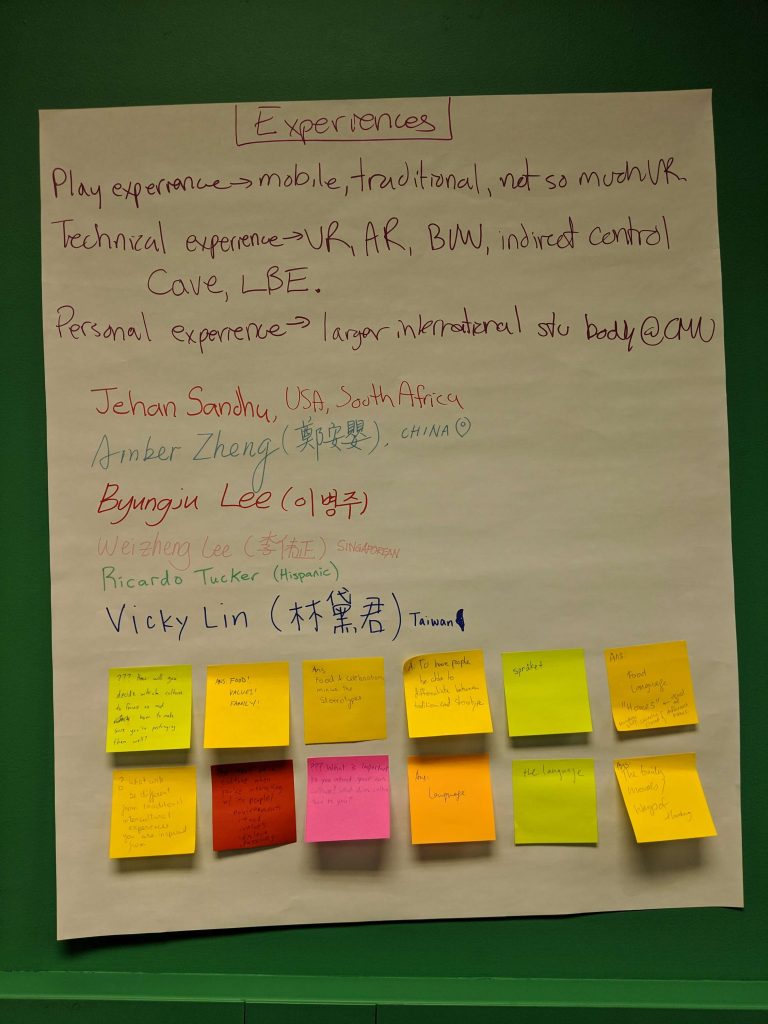 Experiences
Play experience → mobile, traditional, not so much VR
Technical experience → VR, AR, BVW, indirect control
Cave, LBE.
Personal experience → larger international stu body @ CMU
Jehan Sandhu, USA, South Africa
Amber Zheng (鄭安嬰). CHINA
Byungju Lee (이병주)
Weizheng Lee (李伟正) SINGAPOREAN
Ricardo Tucker (Hispanic)
Vicky Lin (林黛君) Taiwan
??? How will you
decide which culture
to focus on and
how to make
sure you're portraying
them well?
Ans: FOOD!
VALUES!
FAMILY!
Ans:
Food & Celebrations
minus the
Stereotypes
A To have people
be able to
differentiate between
tradition and stereotype.
språket
Ans:
Food
Language
"Homes"
? What will
be different
from traditional
intercultural
experiences
you are inspired
from
??? What is important
to you about your own
culture? What does culture
mean to you?
Ans:
Language
the language
Ans:
The family
morals/
Ways of
thinking